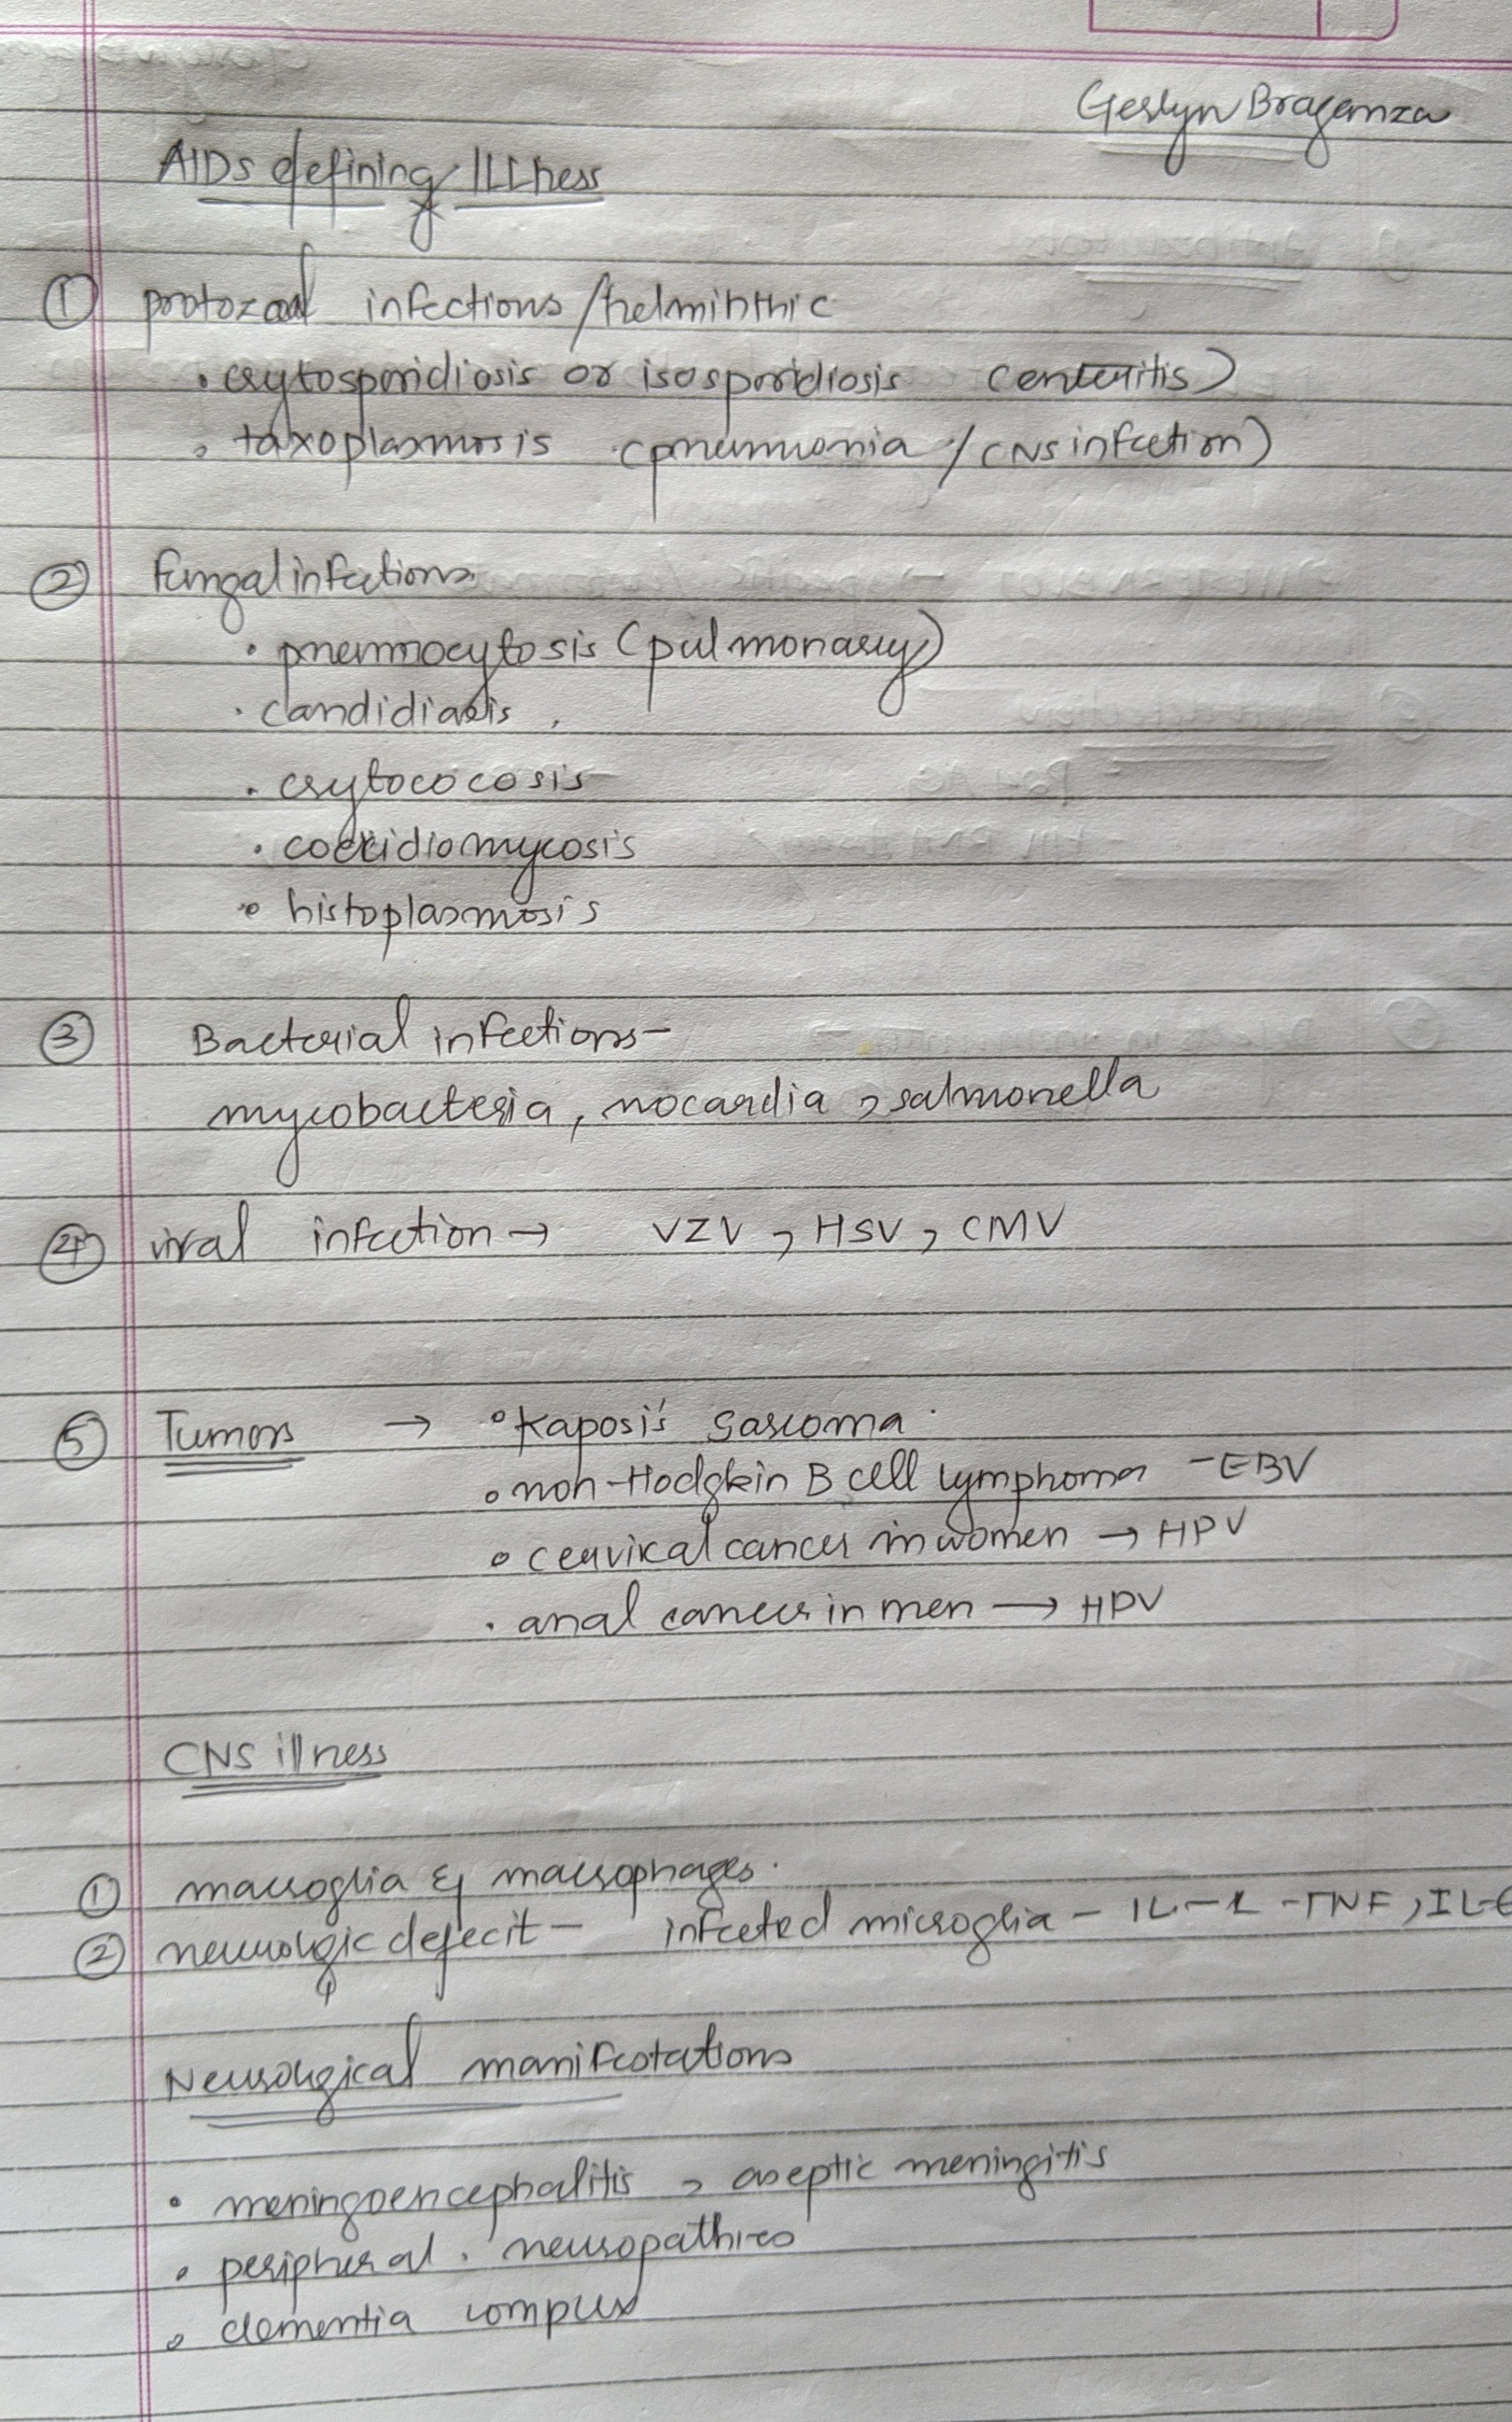 Geslyn Braganza
AIDs defining ILLness
① protozoal infections / helminthic
• crytosporidiosis or isosporidiosis (enteritis)
• taxoplasmosis (pneumonia / CNS infection)
② Fungal infections
• pneumocytosis (pulmonary)
• candidiasis
• crytococosis
• coccidiomycosis
• histoplasmosis
③ Bacterial infections –
mycobacteria, nocardia, salmonella
④ viral infection → VZV, HSV, CMV
⑤ Tumors → • Kaposi's sarcoma
• non-Hodgkin B cell lymphoma – EBV
• cervical cancer in women → HPV
• anal cancer in men → HPV
CNS illness
① macroglia & macrophages.
② neurologic defecit – infected microglia – IL-1 - TNF, IL-6
Neurological manifestations
• meningoencephalitis, aseptic meningitis
• peripheral neuropathies
• dementia complex